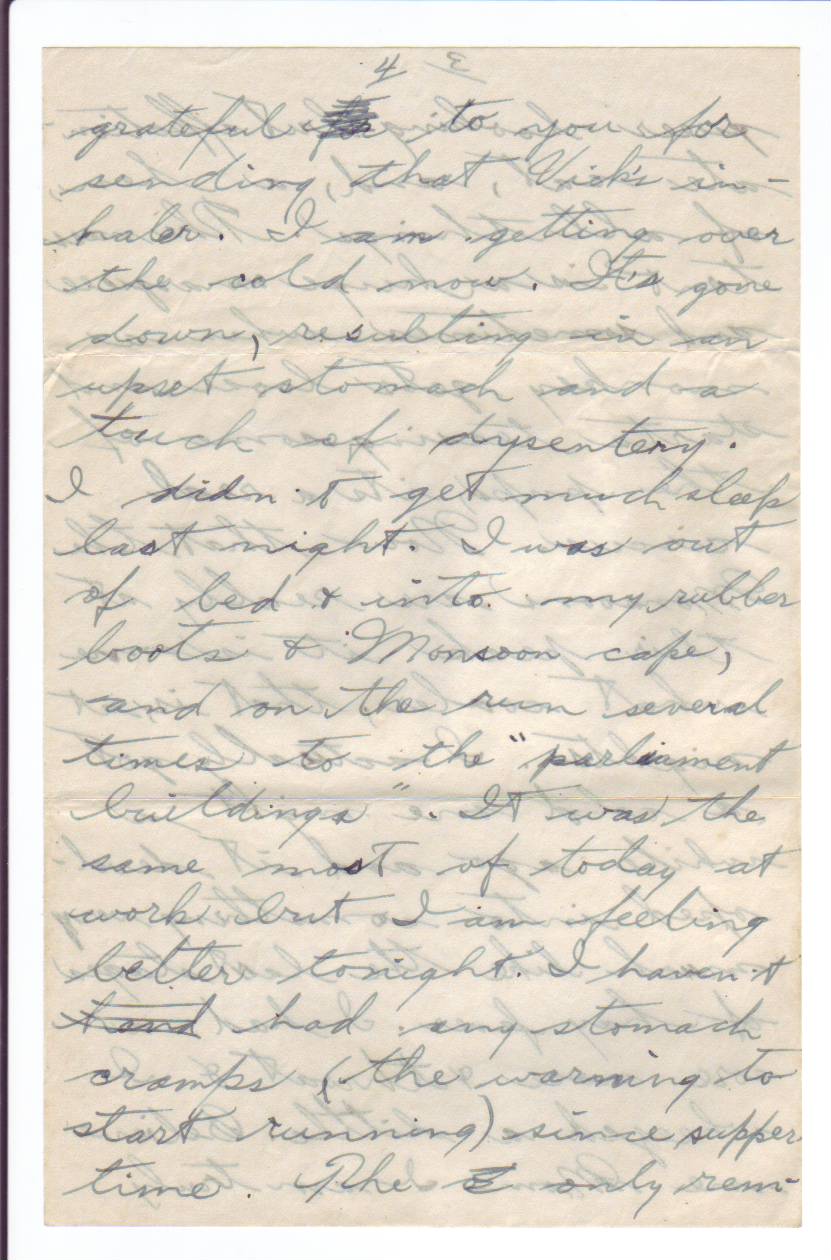 4
grateful to you for
sending, that, Vick's in-
haler. I am getting over
the cold now. It's gone
down, resulting in an
upset stomach and a
touch of dysentery.
I didn't get much sleep
last night. I was out
of bed & into my rubber
boots & Monsoon cape,
and on the run several
times to the "parliament
buildings". It was the
same most of today at
work but I am feeling
better tonight. I haven't
had any stomach
cramps (the warning to
start running) since supper
time. The only rem-